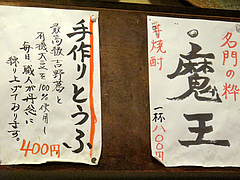 手作りとうふ
最高級吉野葛と
有機大豆を100%使用し
毎日職人が丹念に
練り上げております。
400円
名門の粋
芋焼酎
魔王
一杯八〇〇円